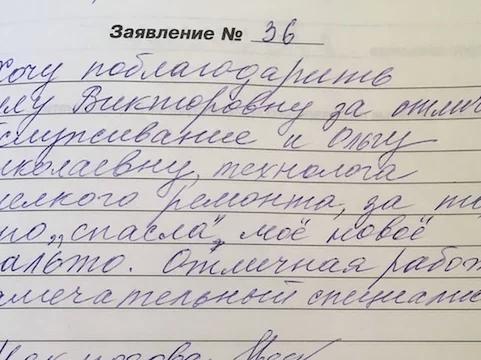 Заявление № 36
Хочу поблагодарить
Викторовну за отлич
служивание и Ольгу
иколаевну, технолога
мелкого ремонта, за то
"спасла" моё новое
альто. Отличная работ
амечательный специалис